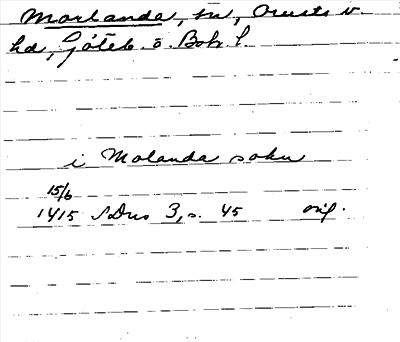 Morlanda, sn, Orusts v.
hd, Göteb. o. Boh. l.
i Molanda sokn
15/6
1415 SDns 3, s. 45 orig.